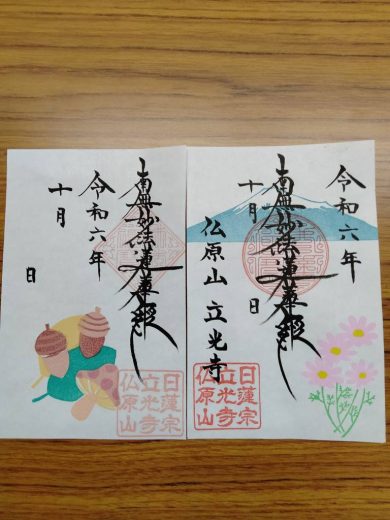 令和六年
南無妙法蓮華経
十月 日
仏原山 立光寺
日蓮宗
立光寺
仏原山
南無妙法蓮華経
令和六年
十月 日
日蓮宗
立光寺
仏原山